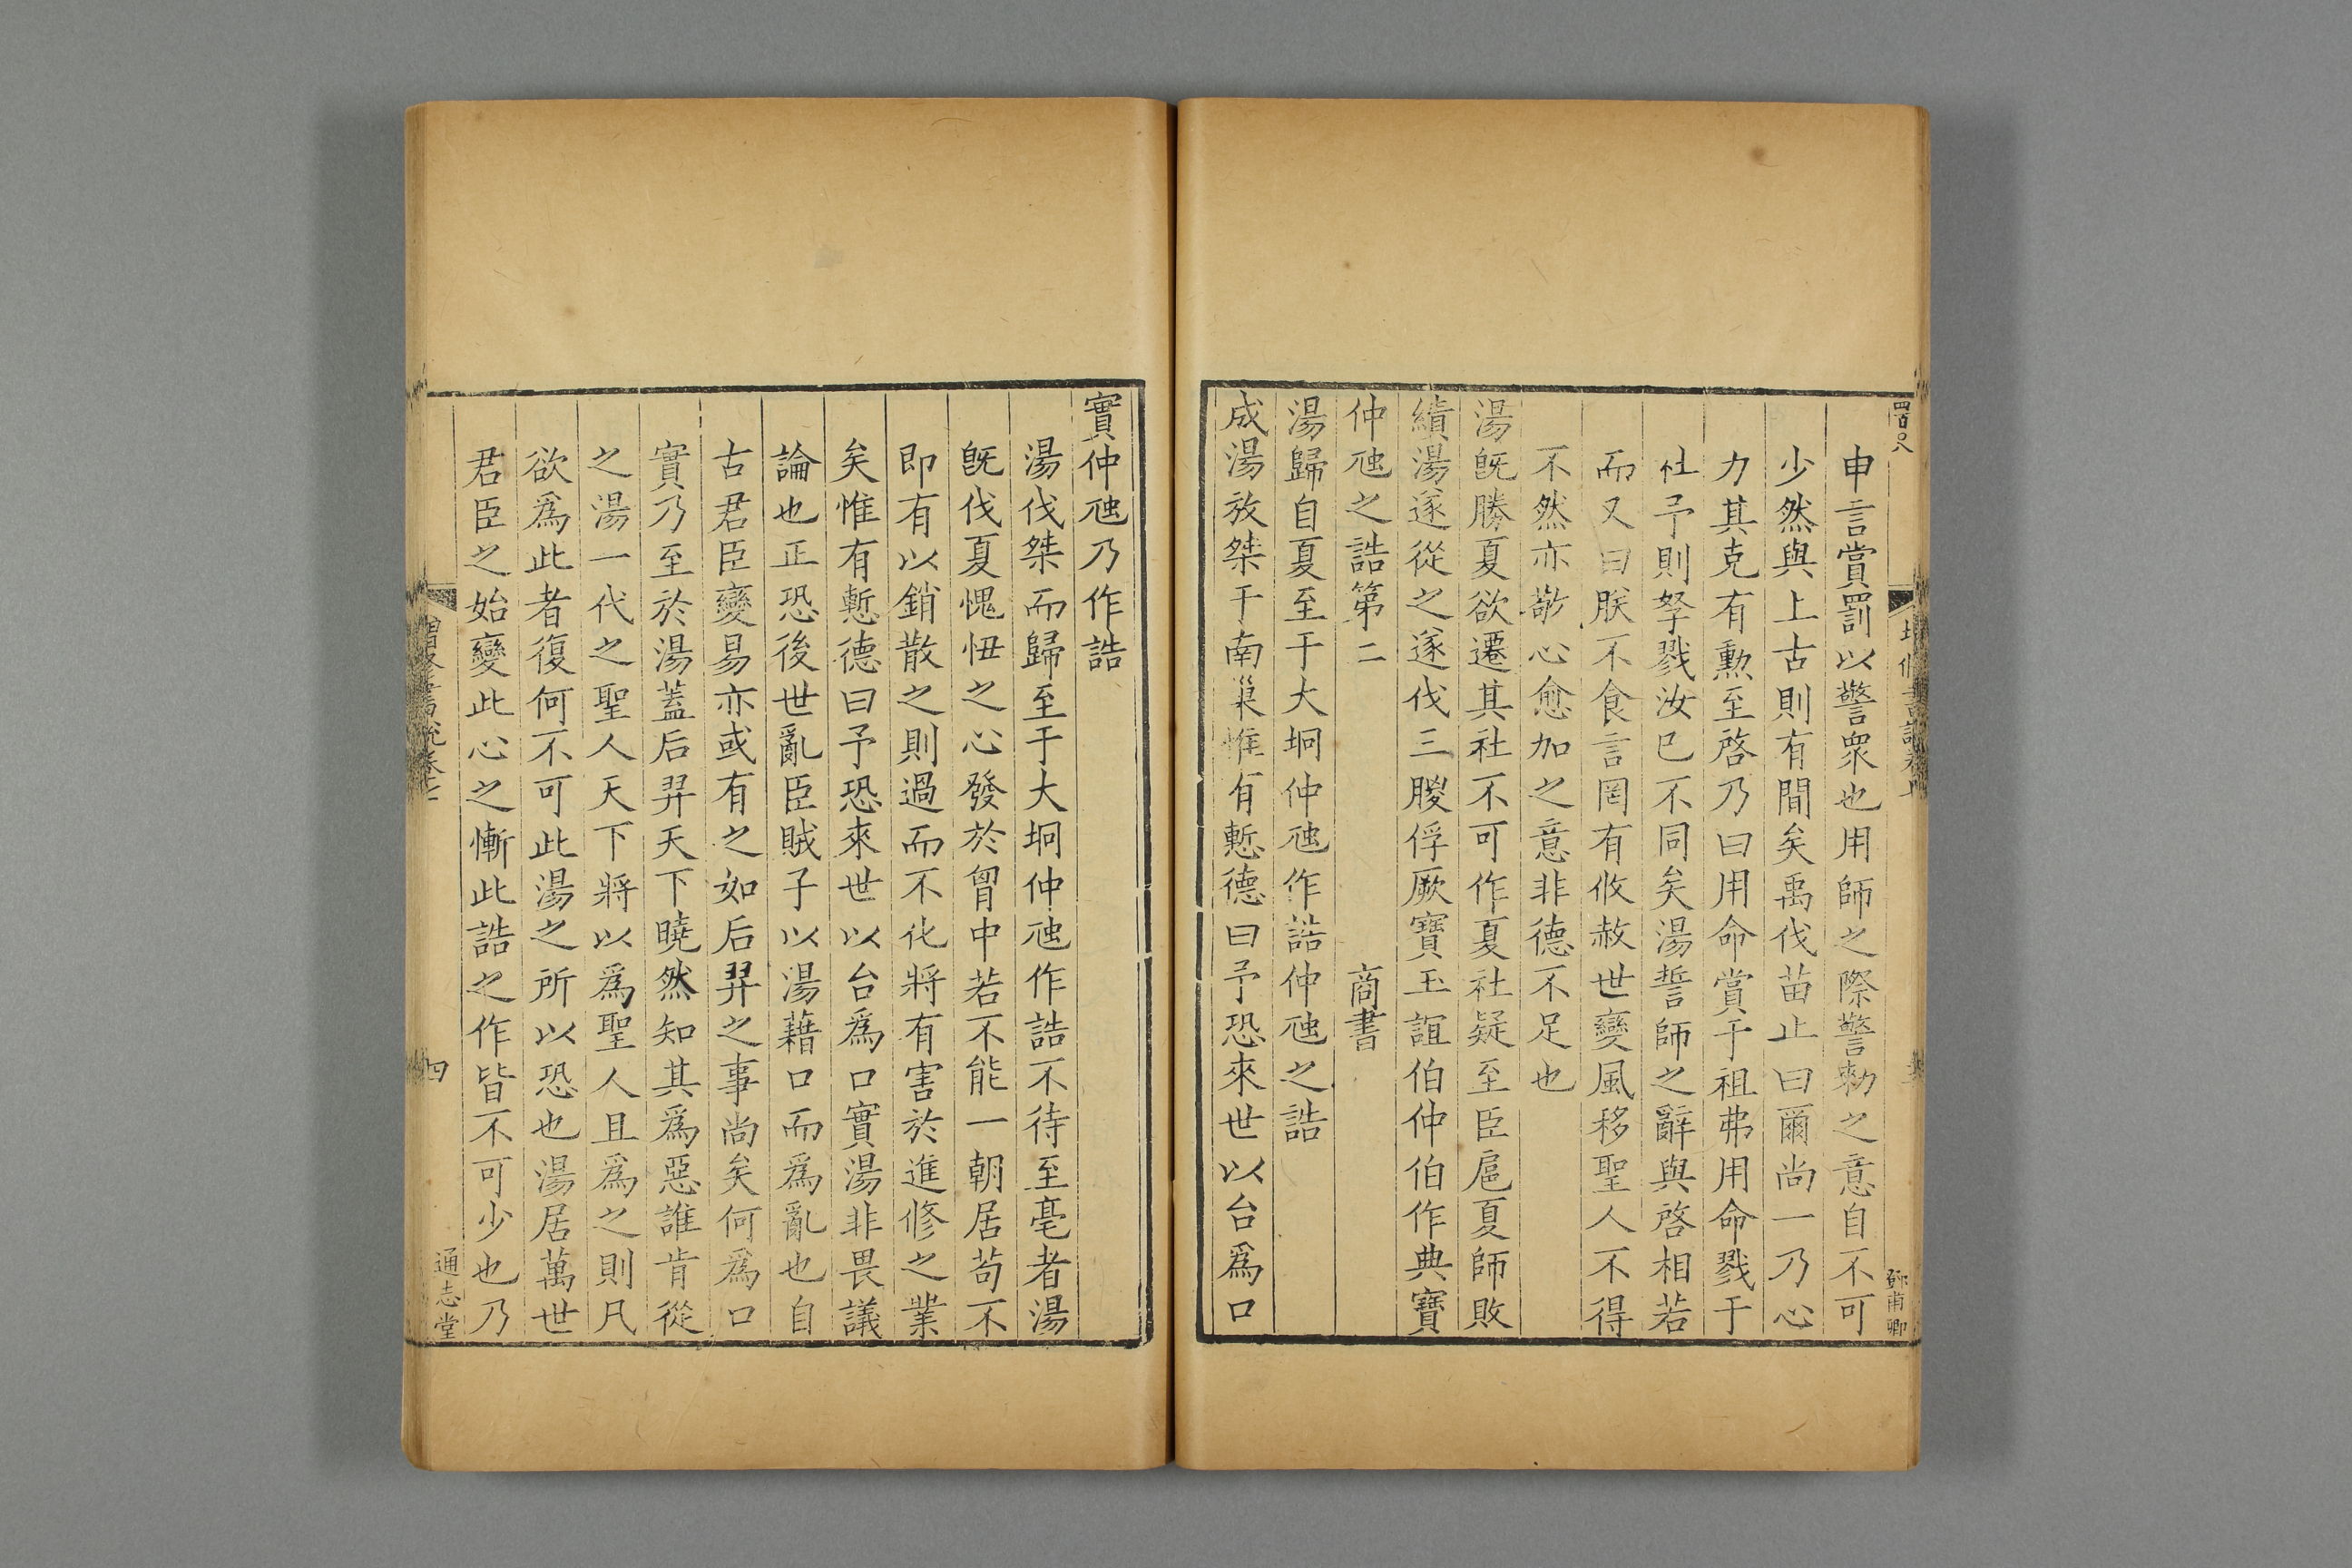 申言賞罰以警衆也用師之際警勑之意自不可
少然與上古則有間矣禹伐苗止曰爾尚一乃心
力其克有勳至啓乃曰用命賞于祖弗用命戮于
社予則孥戮汝已不同矣湯誓師之辭與啓相若
而又曰朕不食言罔有攸赦世變風移聖人不得
不然亦敬心愈加之意非德不足也
湯旣勝夏欲遷其社不可作夏社疑至臣扈夏師敗
績湯遂從之遂伐三朡俘厥寶玉誼伯仲伯作典寶
仲虺之誥第二 商書
湯歸自夏至于大坰仲虺作誥仲虺之誥
成湯放桀于南巢惟有慙德曰予恐來世以台爲口
實仲虺乃作誥
湯伐桀而歸至于大坰仲虺作誥不待至亳者湯
旣伐夏愧忸之心發於胷中若不能一朝居苟不
即有以銷散之則過而不化將有害於進修之業
矣惟有慙德曰予恐來世以台爲口實湯非畏議
論也正恐後世亂臣賊子以湯藉口而爲亂也自
古君臣變易亦或有之如后羿之事尚矣何爲口
實乃至於湯蓋后羿天下曉然知其爲惡誰肯從
之湯一代之聖人天下將以爲聖人且爲之則凡
欲爲此者復何不可此湯之所以恐也湯居萬世
君臣之始變此心之慚此誥之作皆不可少也乃
增修書說卷七
四
通志堂